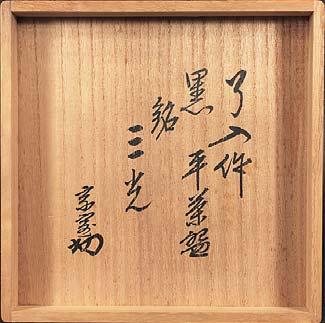 了入作
黒 平茶碗
銘
三光